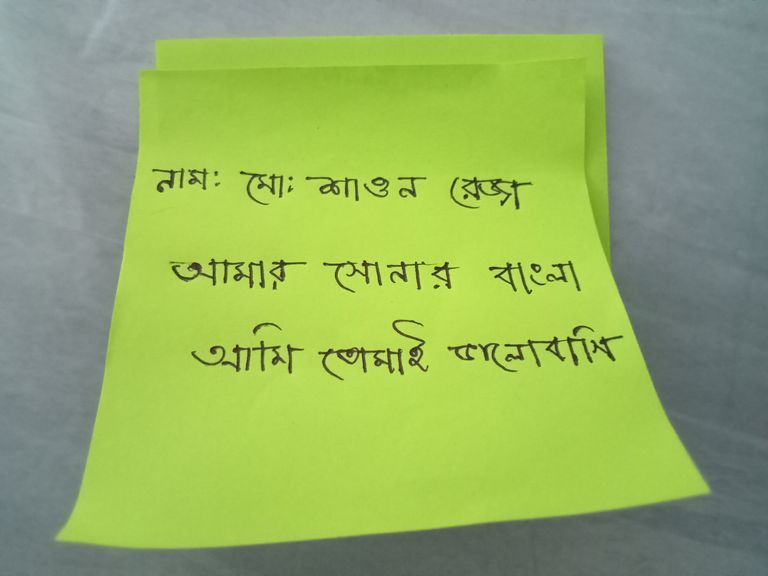 নাম: মো: শাওন রেজা
আমার সোনার বাংলা
আমি তোমাই ভালোবাসি